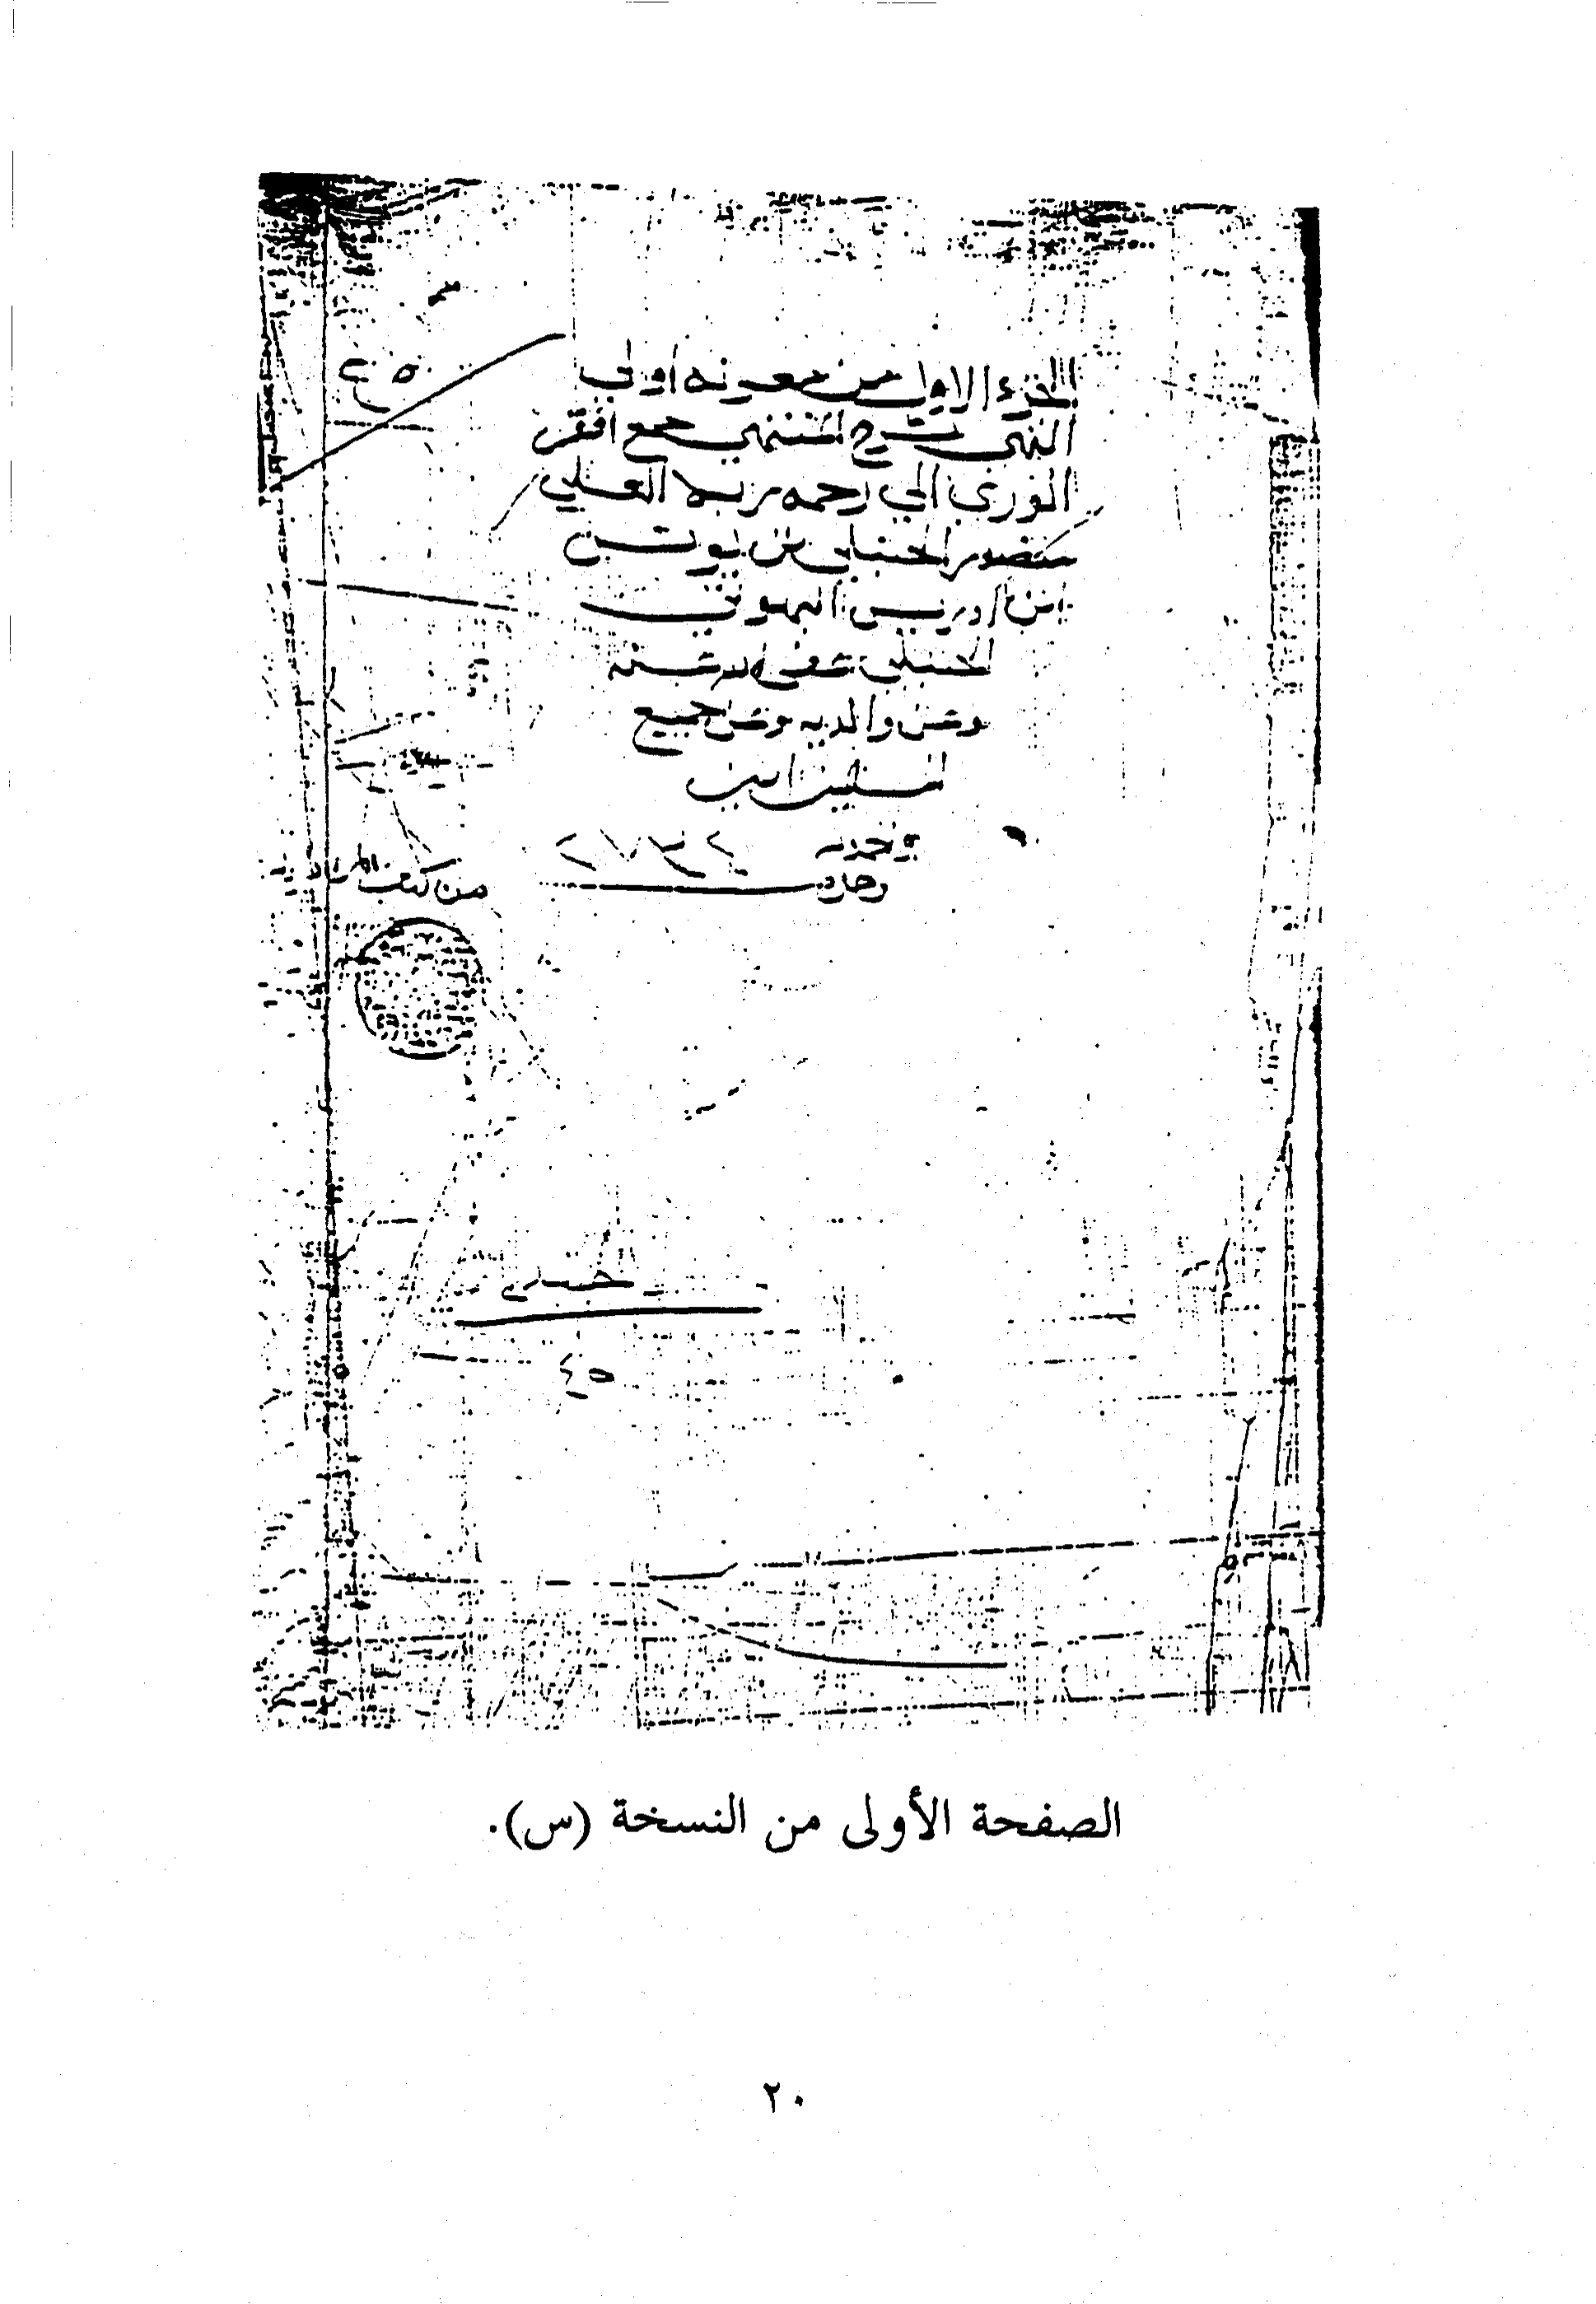 الجزء الاول من معونه اولي
النهى بشرح المنتهي جمع افقر
الورى الي رحمه ربه العلي
منصور الحنبلي بن يونس
ابن ادريس البهوتي
الحنبلي عفى الله عنه
وعن والديه وعن جميع
المسلمين امين
من كتب
حنبلي
٤٥
الصفحة الأولى من النسخة (س).
٢٠